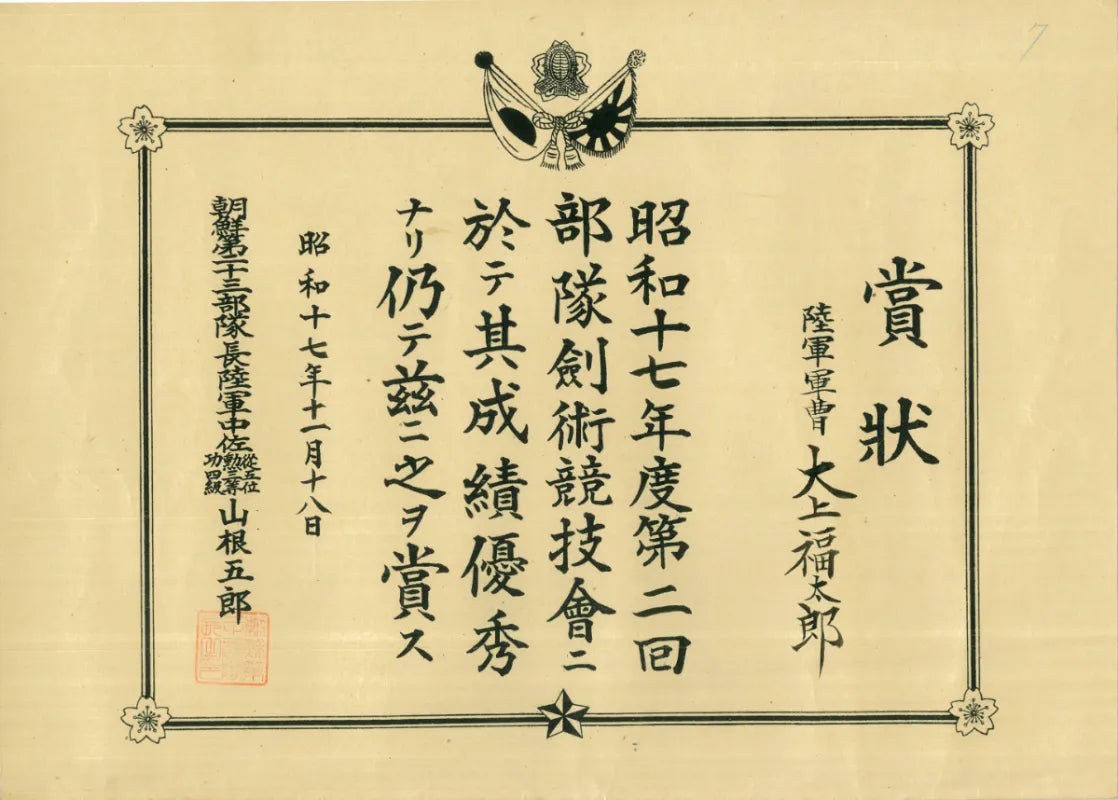 7
賞狀
陸軍軍曹 大上福太郎
昭和十七年度第二回
部隊劍術競技會ニ
於テ其成績優秀
ナリ仍テ茲ニ之ヲ賞ス
昭和十七年十一月十八日
朝鮮第二十三部隊長陸軍中佐從五位勳三等功四級山根五郎